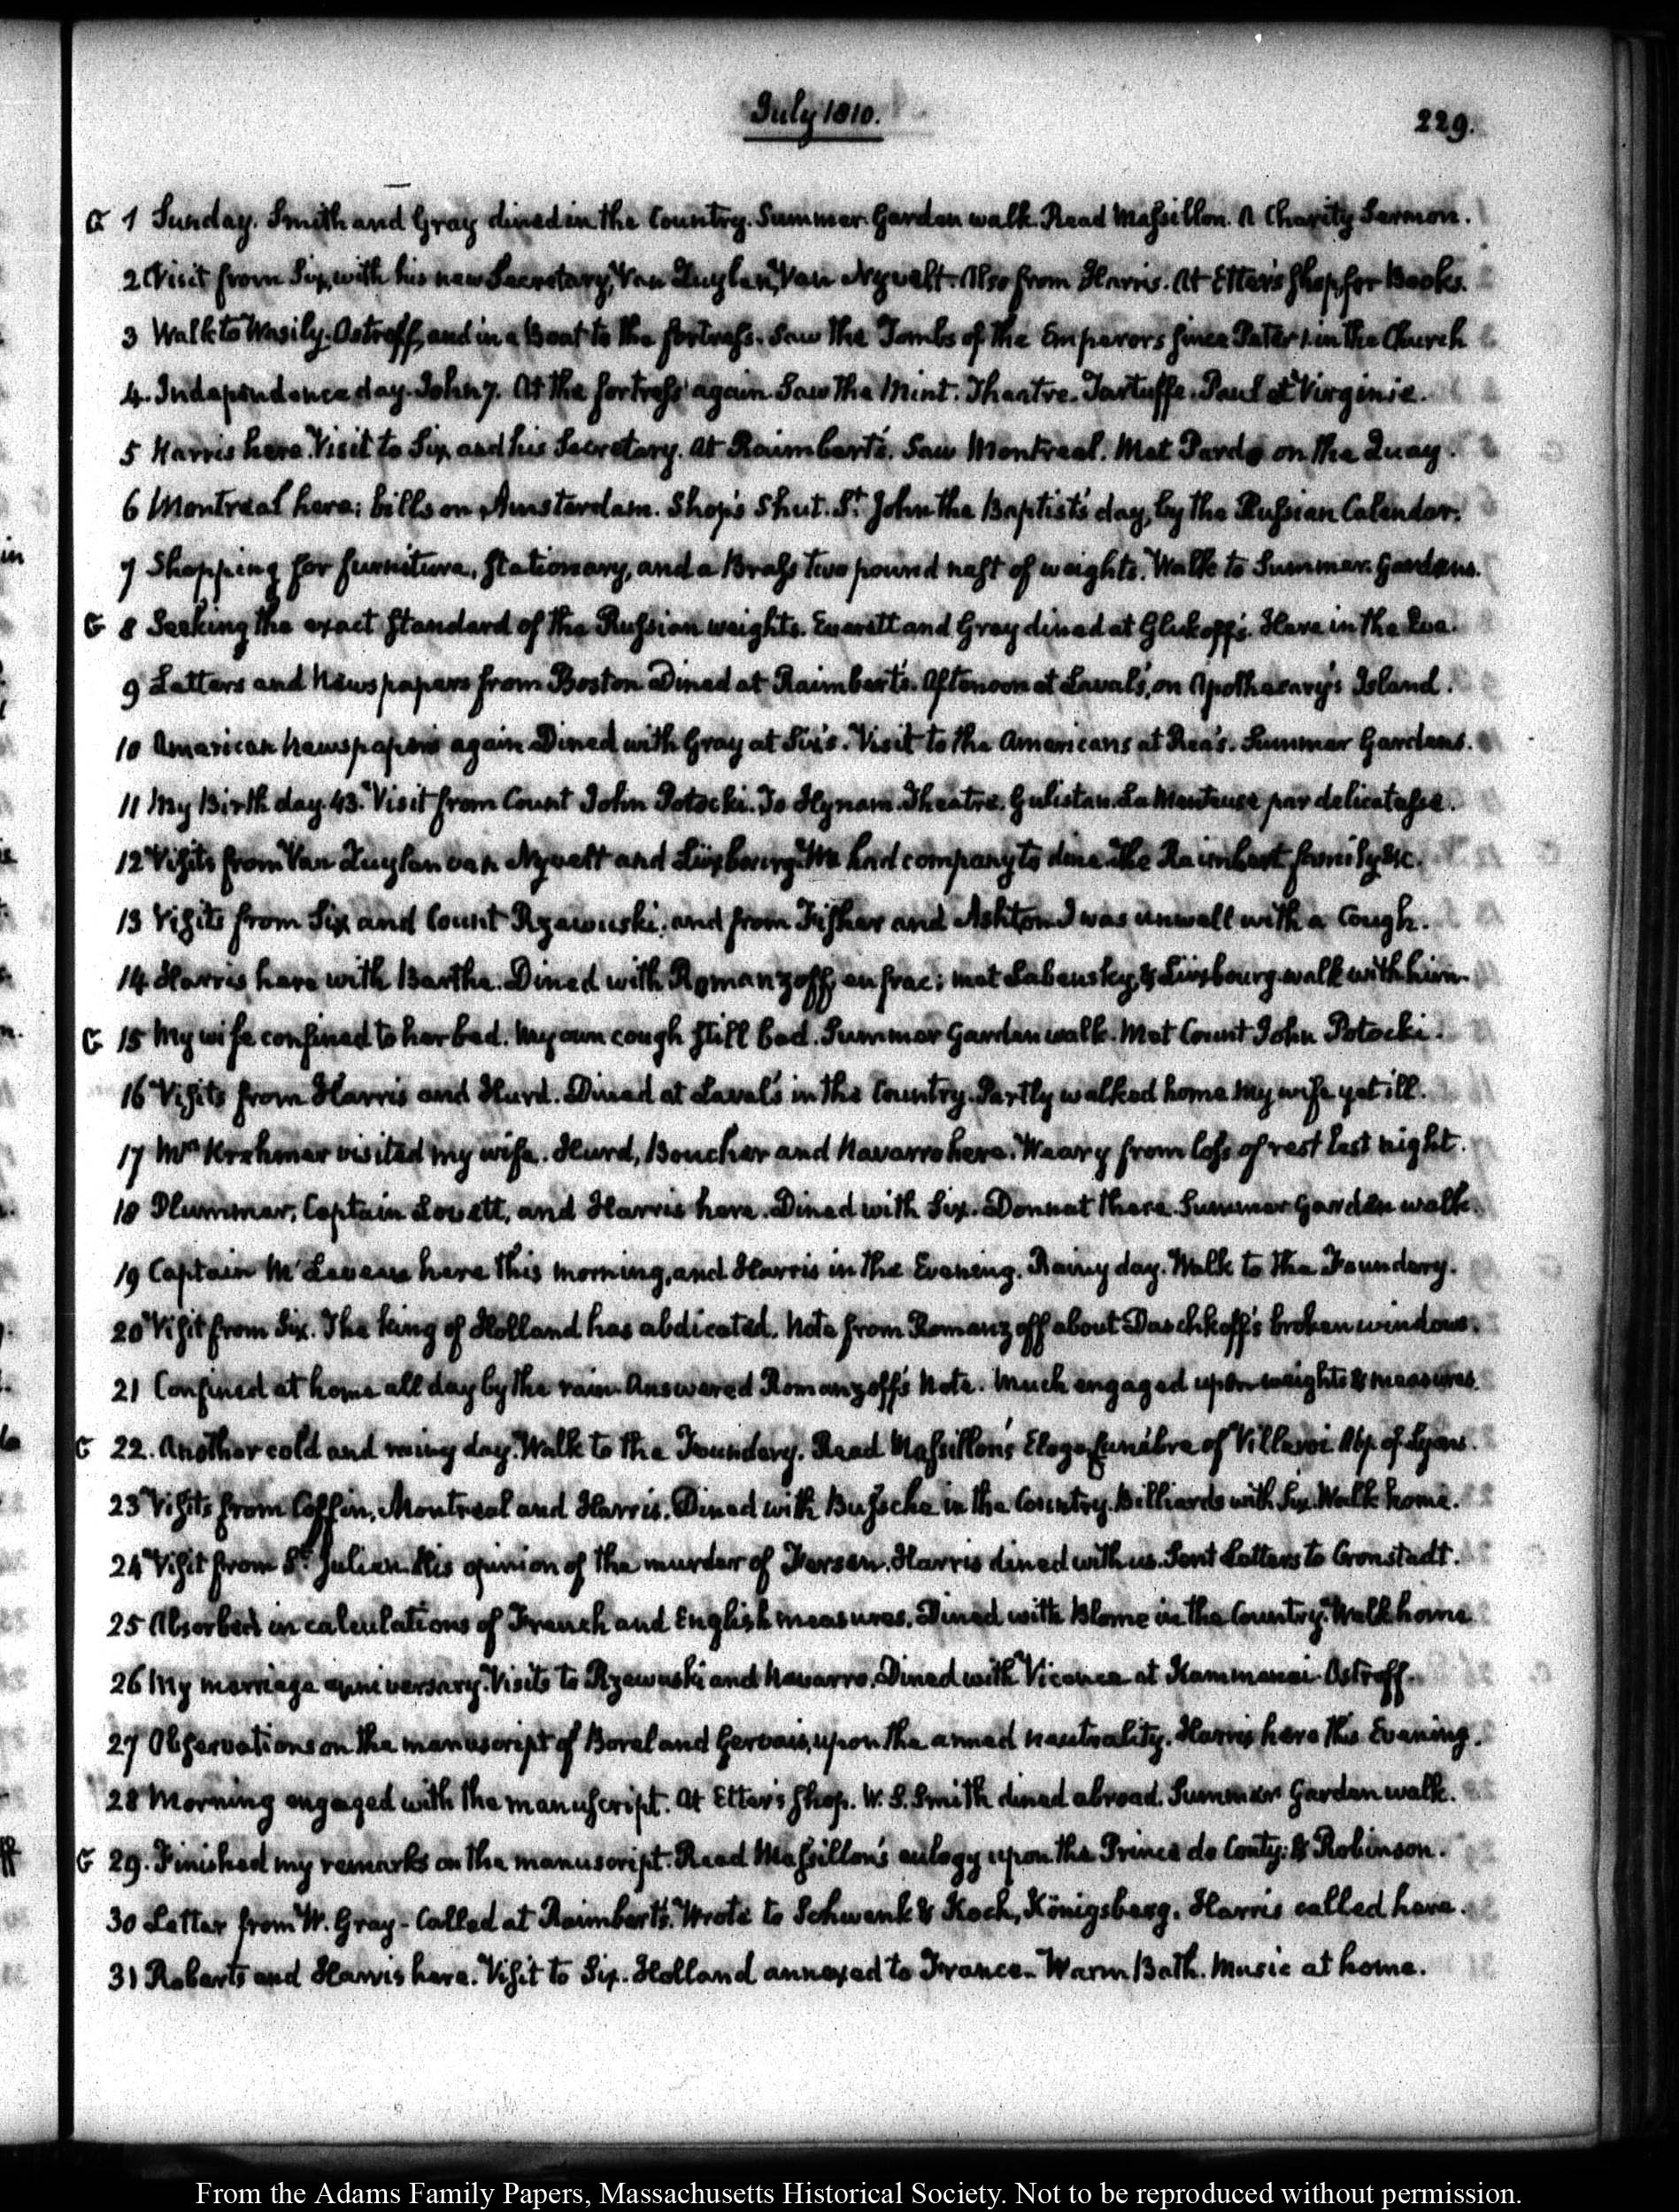 July 1810.
229.
G 1 Sunday. Smith and Gray dined in the Country. Summer Garden walk. Read Massillon. A Charity Sermon.
2 Visit from Six, with his new Secretary, Van Zuylen, Van Nyvelt. Also from Harris. At Etter's shop, for Books.
3 Walk to Wasily-Ostroff, and in a Boat to the fortress. Saw the Tombs of the Emperors since Peter 1. in the Church
4. Independence day. John 7. At the fortress again. Saw the Mint. Theatre. Tartuffe. Paul et Virginie.
5 Harris here. Visit to Six, and his Secretary. At Raimbert's. Saw Montreal. Met Pardo on the Quay.
6 Montreal here; bills on Amsterdam. Shop's shut. St. John the Baptist's day, by the Russian Calendar.
7 Shopping for furniture, stationary, and a Brass two pound nest of weights. Walk to Summer Gardens.
G 8 Seeking the exact standard of the Russian weights. Everett and Gray dined at Glukoff's. Here in the Eve.
9 Letters and Newspapers from Boston Dined at Raimbert's. Aftenoon at Laval's, on Apothecary's Island.
10 American Newspapers again Dined with Gray at Six's. Visit to the Americans at Rea's. Summer Gardens.
11 My Birth day. 43. Visit from Count John Potocki. To Hynam. Theatre. Gulistan. La Menteuse par delicatesse.
12 Visits from Van Zuylen van Nyvelt and Lüxbourg. We had company to dine. The Raimbert family &c.
13 Visits from Six and Count Rzewuski; and from Fisher and Ashton I was unwell with a Cough.
14 Harris here with Barthe. Dined with Romanzoff, en frac; met Labensky, & Lüxbourg. walk with him.
G 15 My wife confined to her bed. My own cough still bad. Summer Garden walk. Met Count John Potocki.
16 Visits from Harris and Hurd. Dined at Laval's in the Country. Partly walked home My wife yet ill.
17 Mrs. Krehmer visited my wife. Hurd, Boucher and Navarro here. Weary from loss of rest last night.
18 Plummer, Captain Lovett, and Harris here. Dined with Six. Donnat there. Summer Garden walk.
19 Captain here this morning, and Harris in the Evening. Rainy day. Walk to the Foundery.
20 Visit from Six. The king of Holland has abdicated. Note from Romanzoff about Daschkoff's broken windows.
21 Confined at home all day by the rain. Answered Romanzoff's Note. Much engaged upon weights & measures.
G 22. Another cold and rainy day. Walk to the Foundery. Read Massillon's Eloge funèbre of Villeroi Abp. of Lyons.
23 Visits from Coffin, Montreal and Harris. Dined with Bussche in the Country. Billiards with Six. Walk home.
24 Visit from St. Julien. His opinion of the murder of Fersen. Harris dined with us. Sent Letters to Cronstadt.
25 Absorbed in calculations of French and English measures. Dined with Blome in the Country. Walk home
26 My marriage anniversary. Visits to Rzewuski and Navarro. Dined with Vicence at Kammenoi-Ostroff.
27 Observations on the manuscript of Borel and Gervais, upon the armed neutrality. Harris here this Evening.
28 Morning engaged with the manuscript. At Etter's shop. W. S. Smith dined abroad. Summer Garden walk.
G 29. Finished my remarks on the manuscript. Read Massillon's eulogy upon the Prince de Conty; & Robinson.
30 Letter from W. Gray - Called at Raimbert's. Wrote to Schwenk & Koch, Königsberg. Harris called here.
31 Roberts and Harris here. Visit to Six. Holland annexed to France. Warm Bath. Music at home.
From the Adams Family Papers, Massachusetts Historical Society. Not to be reproduced without permission.